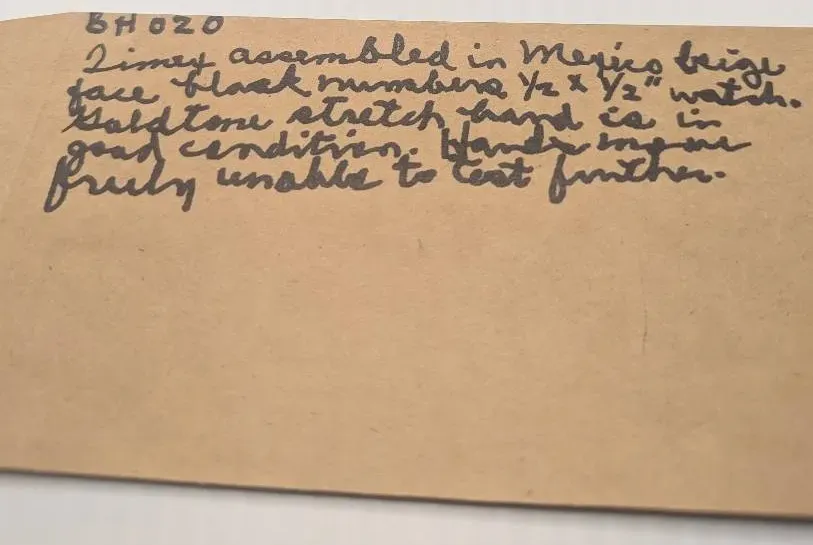 BH020
Timex assembled in Mexico beige
face black numbers 1/2 x 1/2" watch.
Goldtone stretch band is in
good condition. Hands move
freely unable to test further.